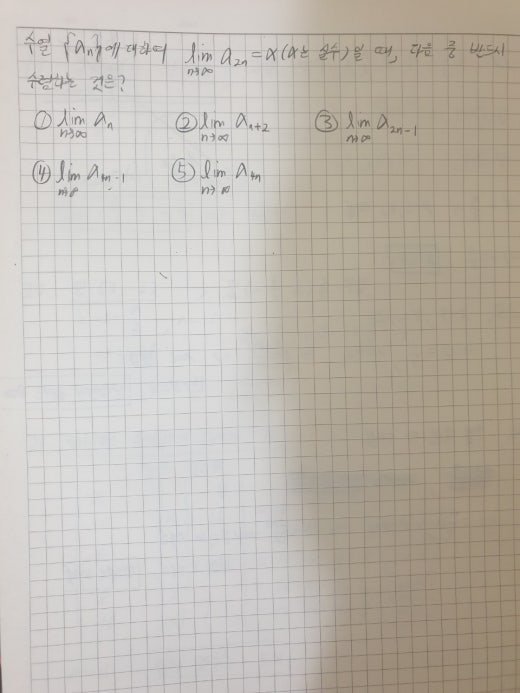 수열 {aₙ}에 대하여 lim_{n→∞} a₂ₙ = α (α는 실수)일 때, 다음 중 반드시
수렴하는 것은?
① lim_{n→∞} aₙ ② lim_{n→∞} aₙ₊₂ ③ lim_{n→∞} a₂ₙ₋₁
④ lim_{n→∞} a₄ₙ₋₁ ⑤ lim_{n→∞} a₄ₙ